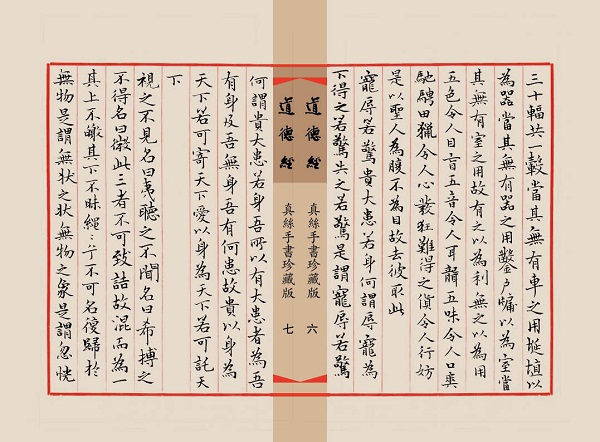 三十輻共一轂當其無有車之用埏埴以
為器當其無有器之用鑿户牖以為室當
其無有室之用故有之以為利無之以為用
五色令人目盲五音令人耳聾五味令人口爽
馳騁田獵令人心發狂難得之貨令人行妨
是以聖人為腹不為目故去彼取此
寵辱若驚貴大患若身何謂辱寵為
下得之若驚失之若驚是謂寵辱若驚
道德經 真絲手書珍藏版 六
道德經 真絲手書珍藏版 七
何謂貴大患若身吾所以有大患者為吾
有身及吾無身吾有何患故貴以身為
天下若可寄天下愛以身為天下若可託天
下
視之不見名曰夷聽之不聞名曰希搏之
不得名曰微此三者不可致詰故混而為一
其上不皦其下不昧繩〻兮不可名復歸於
無物是謂無狀之狀無物之象是謂忽恍